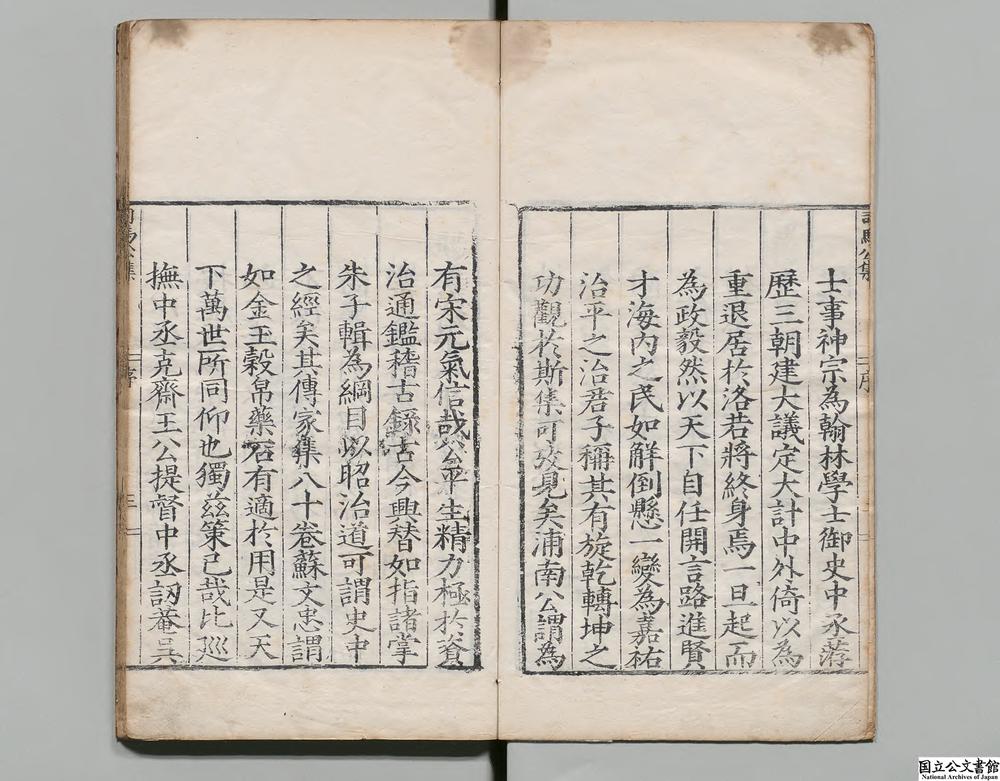 士事神宗為翰林學士御史中丞荐
歴三朝建大議定大計中外倚以為
重退居於洛若將終身焉一旦起而
為政毅然以天下自任開言路進賢
才海内之民如解倒懸一變為嘉祐
治平之治君子稱其有旋乾轉坤之
功觀於斯集可攷見矣浦南公謂為
有宋元氣信哉公平生精力極於資
治通鑑稽古錄古今興替如指諸掌
朱子輯為綱目以昭治道可謂史中
之經矣其傳家集八十卷蘇文忠謂
如金玉榖帛藥石有適於用是又天
下萬世所同仰也獨兹策已哉比廵
撫中丞克齋王公提督中丞訒菴吳
司馬公集
序
三
国立公文書館
National Archives of Japan